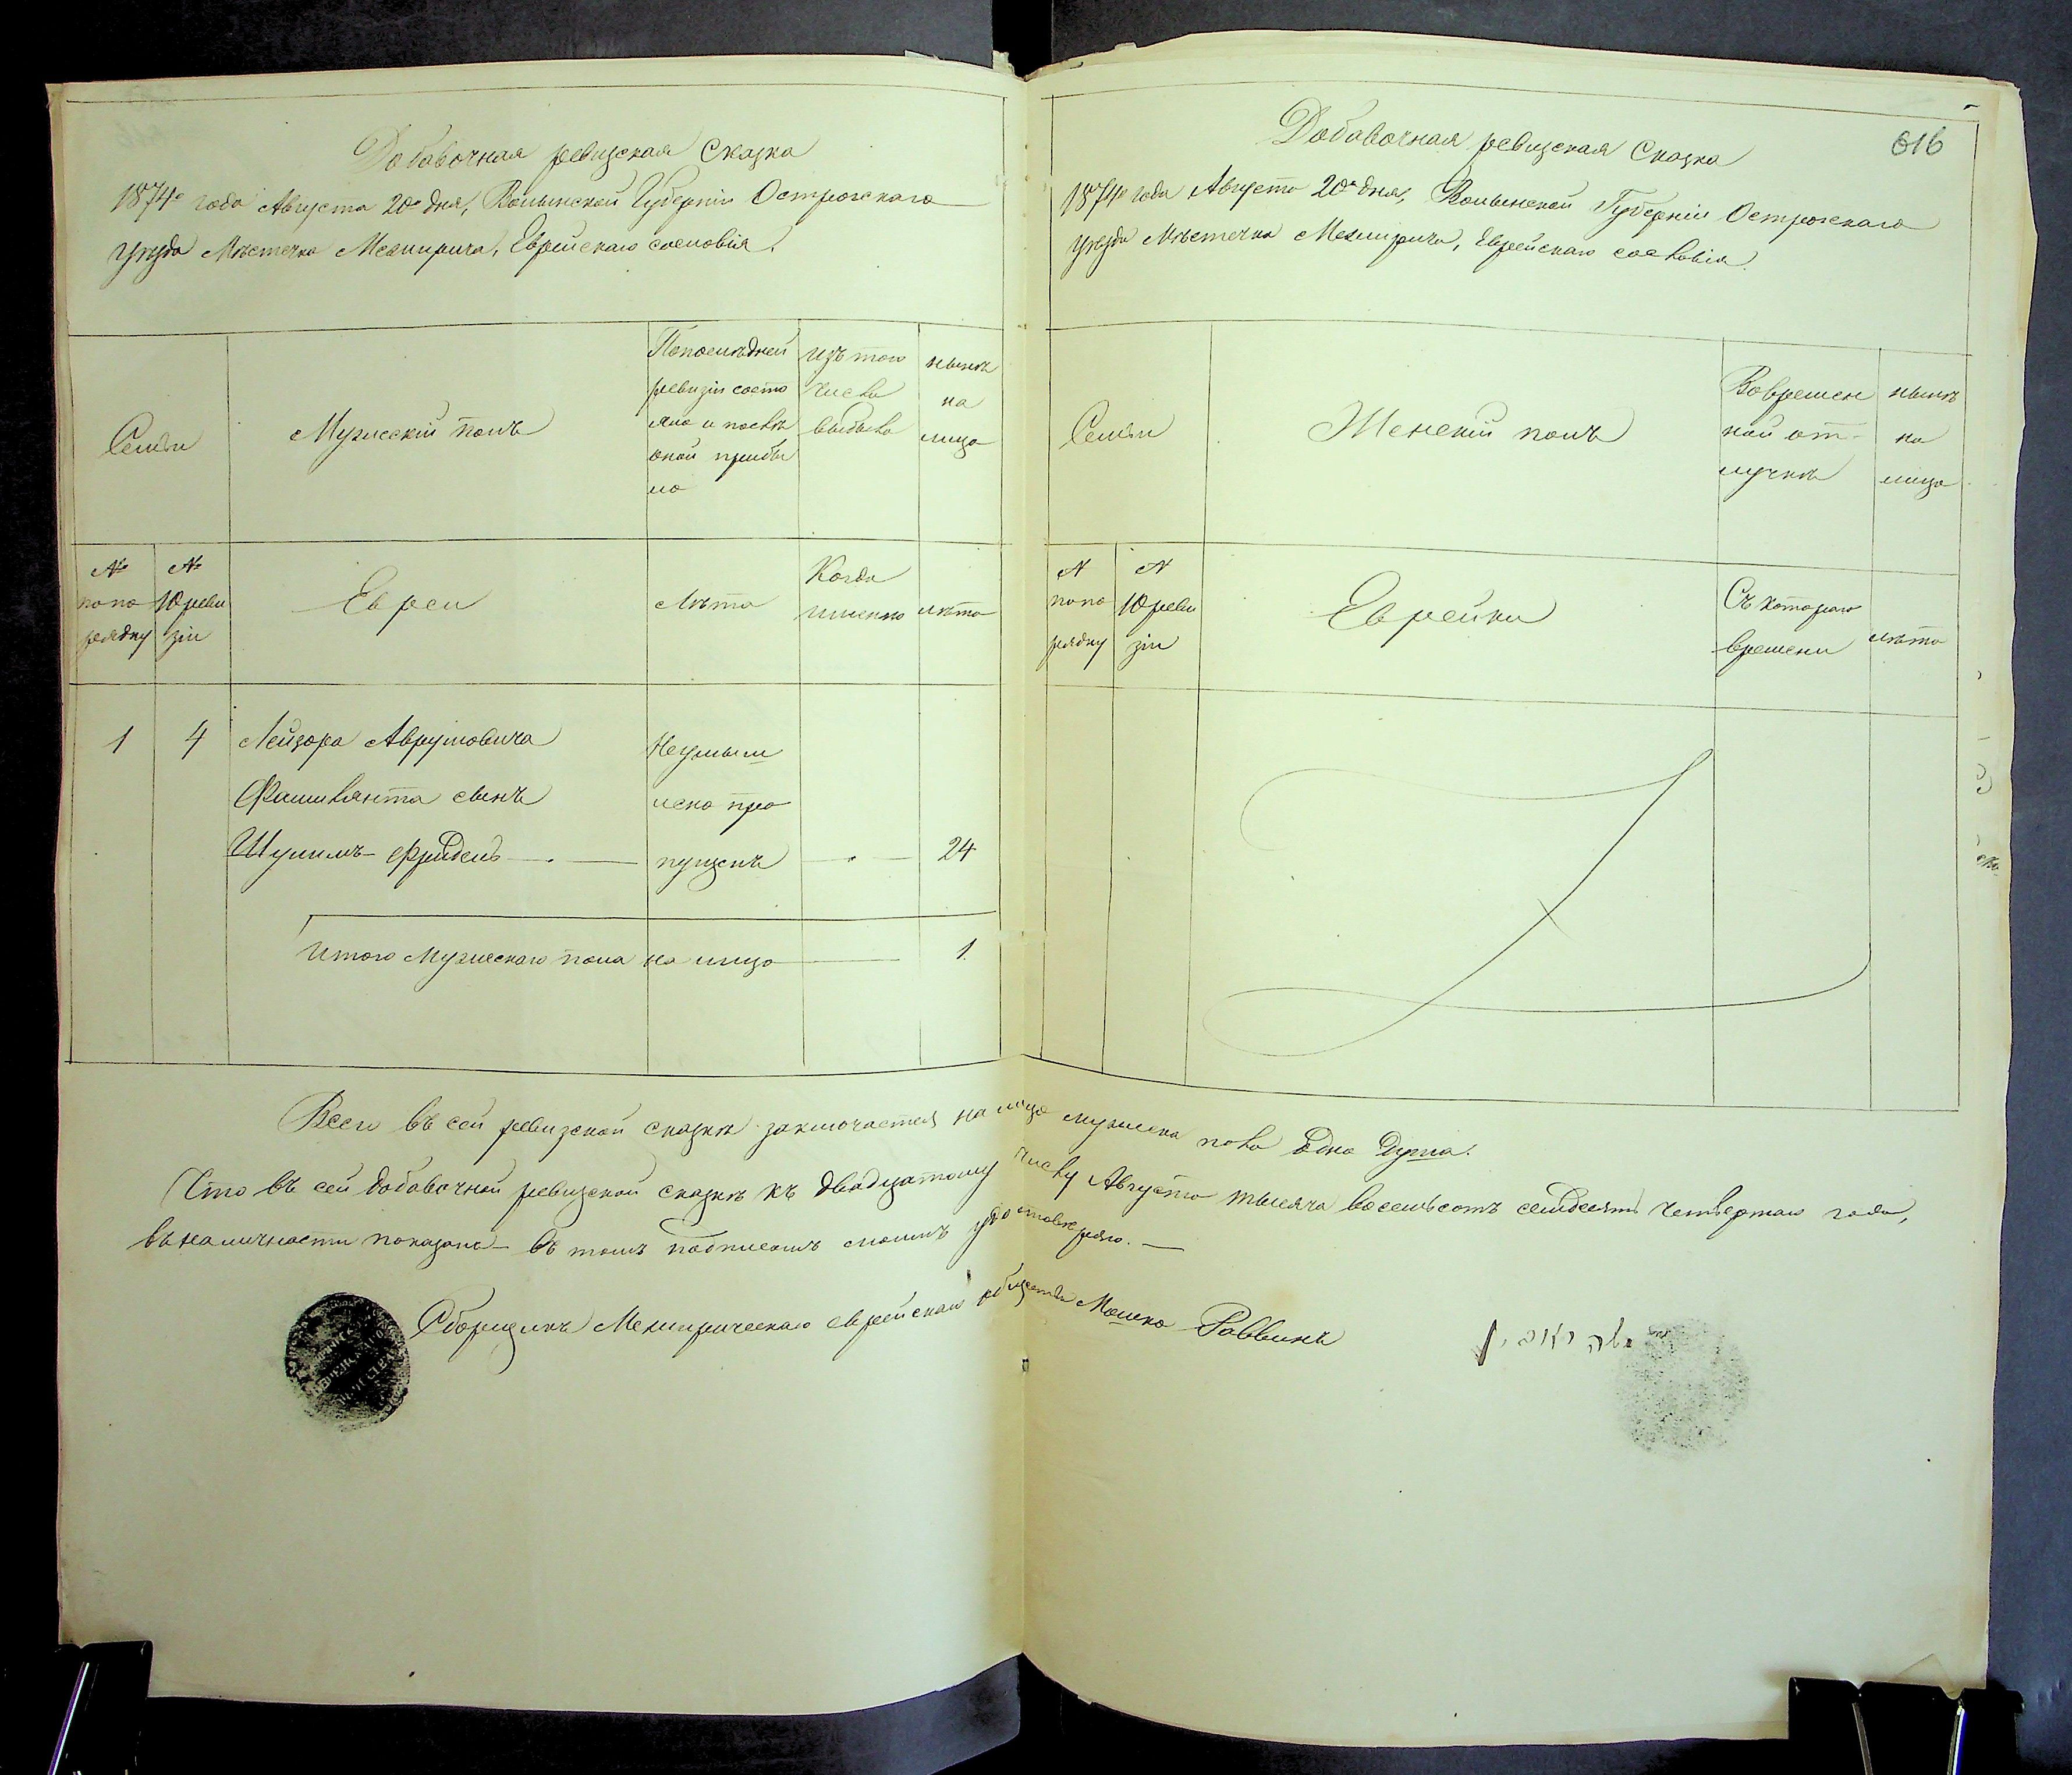 Добавочная ревизская Сказка
1874го года Августа 20го дня, Волынской Губерніи Острожскаго
уѣзда Мѣстечка Межирича, Еврейскаго сословія.
Семьи
Мужескій полъ
Попослѣдней
ревизіи состо
яло и послѣ
оной прибы
ло
изъ того
числа
выбыло
нынѣ
на
лицо
№
попо
рядку
№
10 реви
зіи
Евреи
Лѣта
Когда
именно
лѣта
1 4 Лейзора Аврумовича Неумыш
сынъ лено про
Шулимъ Фридель пущенъ 24
Итого Мужескаго пола на лицо 1.
Добавочная ревизская Сказка
616
1874го года Августа 20го дня, Волынской Губерніи Острожскаго
уѣзда Мѣстечка Межирича, Еврейскаго сословія.
Семьи
Женскій полъ
Вовремен
ной от-
лучкѣ
нынѣ
на
лицо
№
попо
рядку
№
10 реви
зіи
Еврейки
Съ котораго
времени
лѣта
Всего въ сей ревизской сказкѣ заключается на лицо мужеска пола одна душа.
Что въ сей добавочной ревизской сказкѣ къ двадцатому числу Августа тысяча восемьсотъ семдесятъ четвертаго года,
въ наличности показано въ томъ подписомъ моимъ удостовѣряю.
Сборщикъ Межирическаго еврейскаго общества Мошко Раввинъ